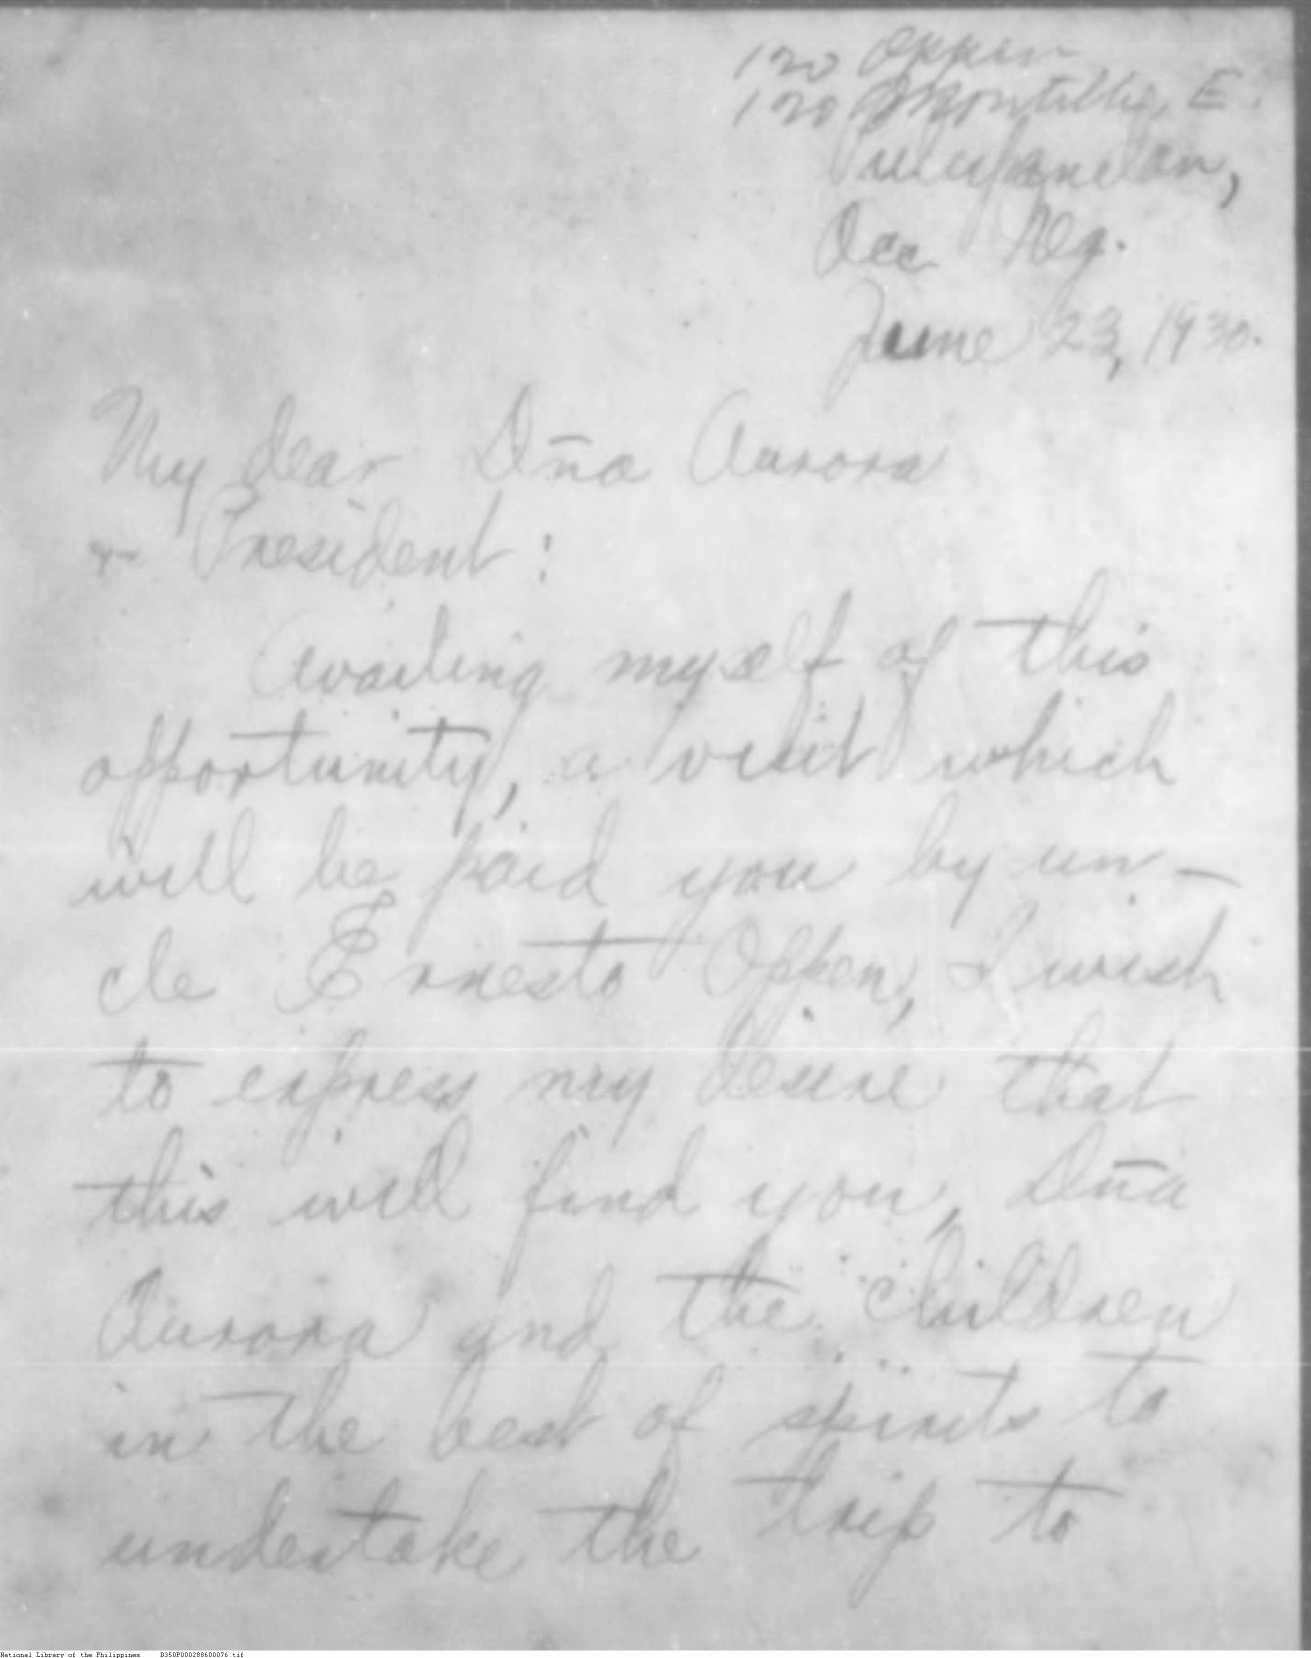 120 Oppen
120 Montilla, E.
Pulupandan,
Occ. Neg.
June 23, 1930.
My dear Dña Aurora
+ President:
Availing myself of this
opportunity, a visit which
will be paid you by un-
cle Ernesto Oppen, I wish
to express my desire that
this will find you, Dña
Aurora and the children
in the best of spirits to
undertake the trip to
National Library of the Philippines D350P000288600076.tif